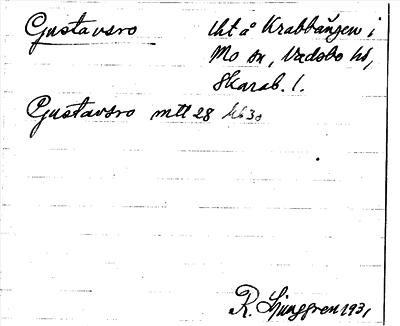 Gustavsro
lht å Krabbängen i
Mo sn, Vadsbo hd,
Skarab. l.
Gustavsro mtl 28
R. Ljunggren 1931